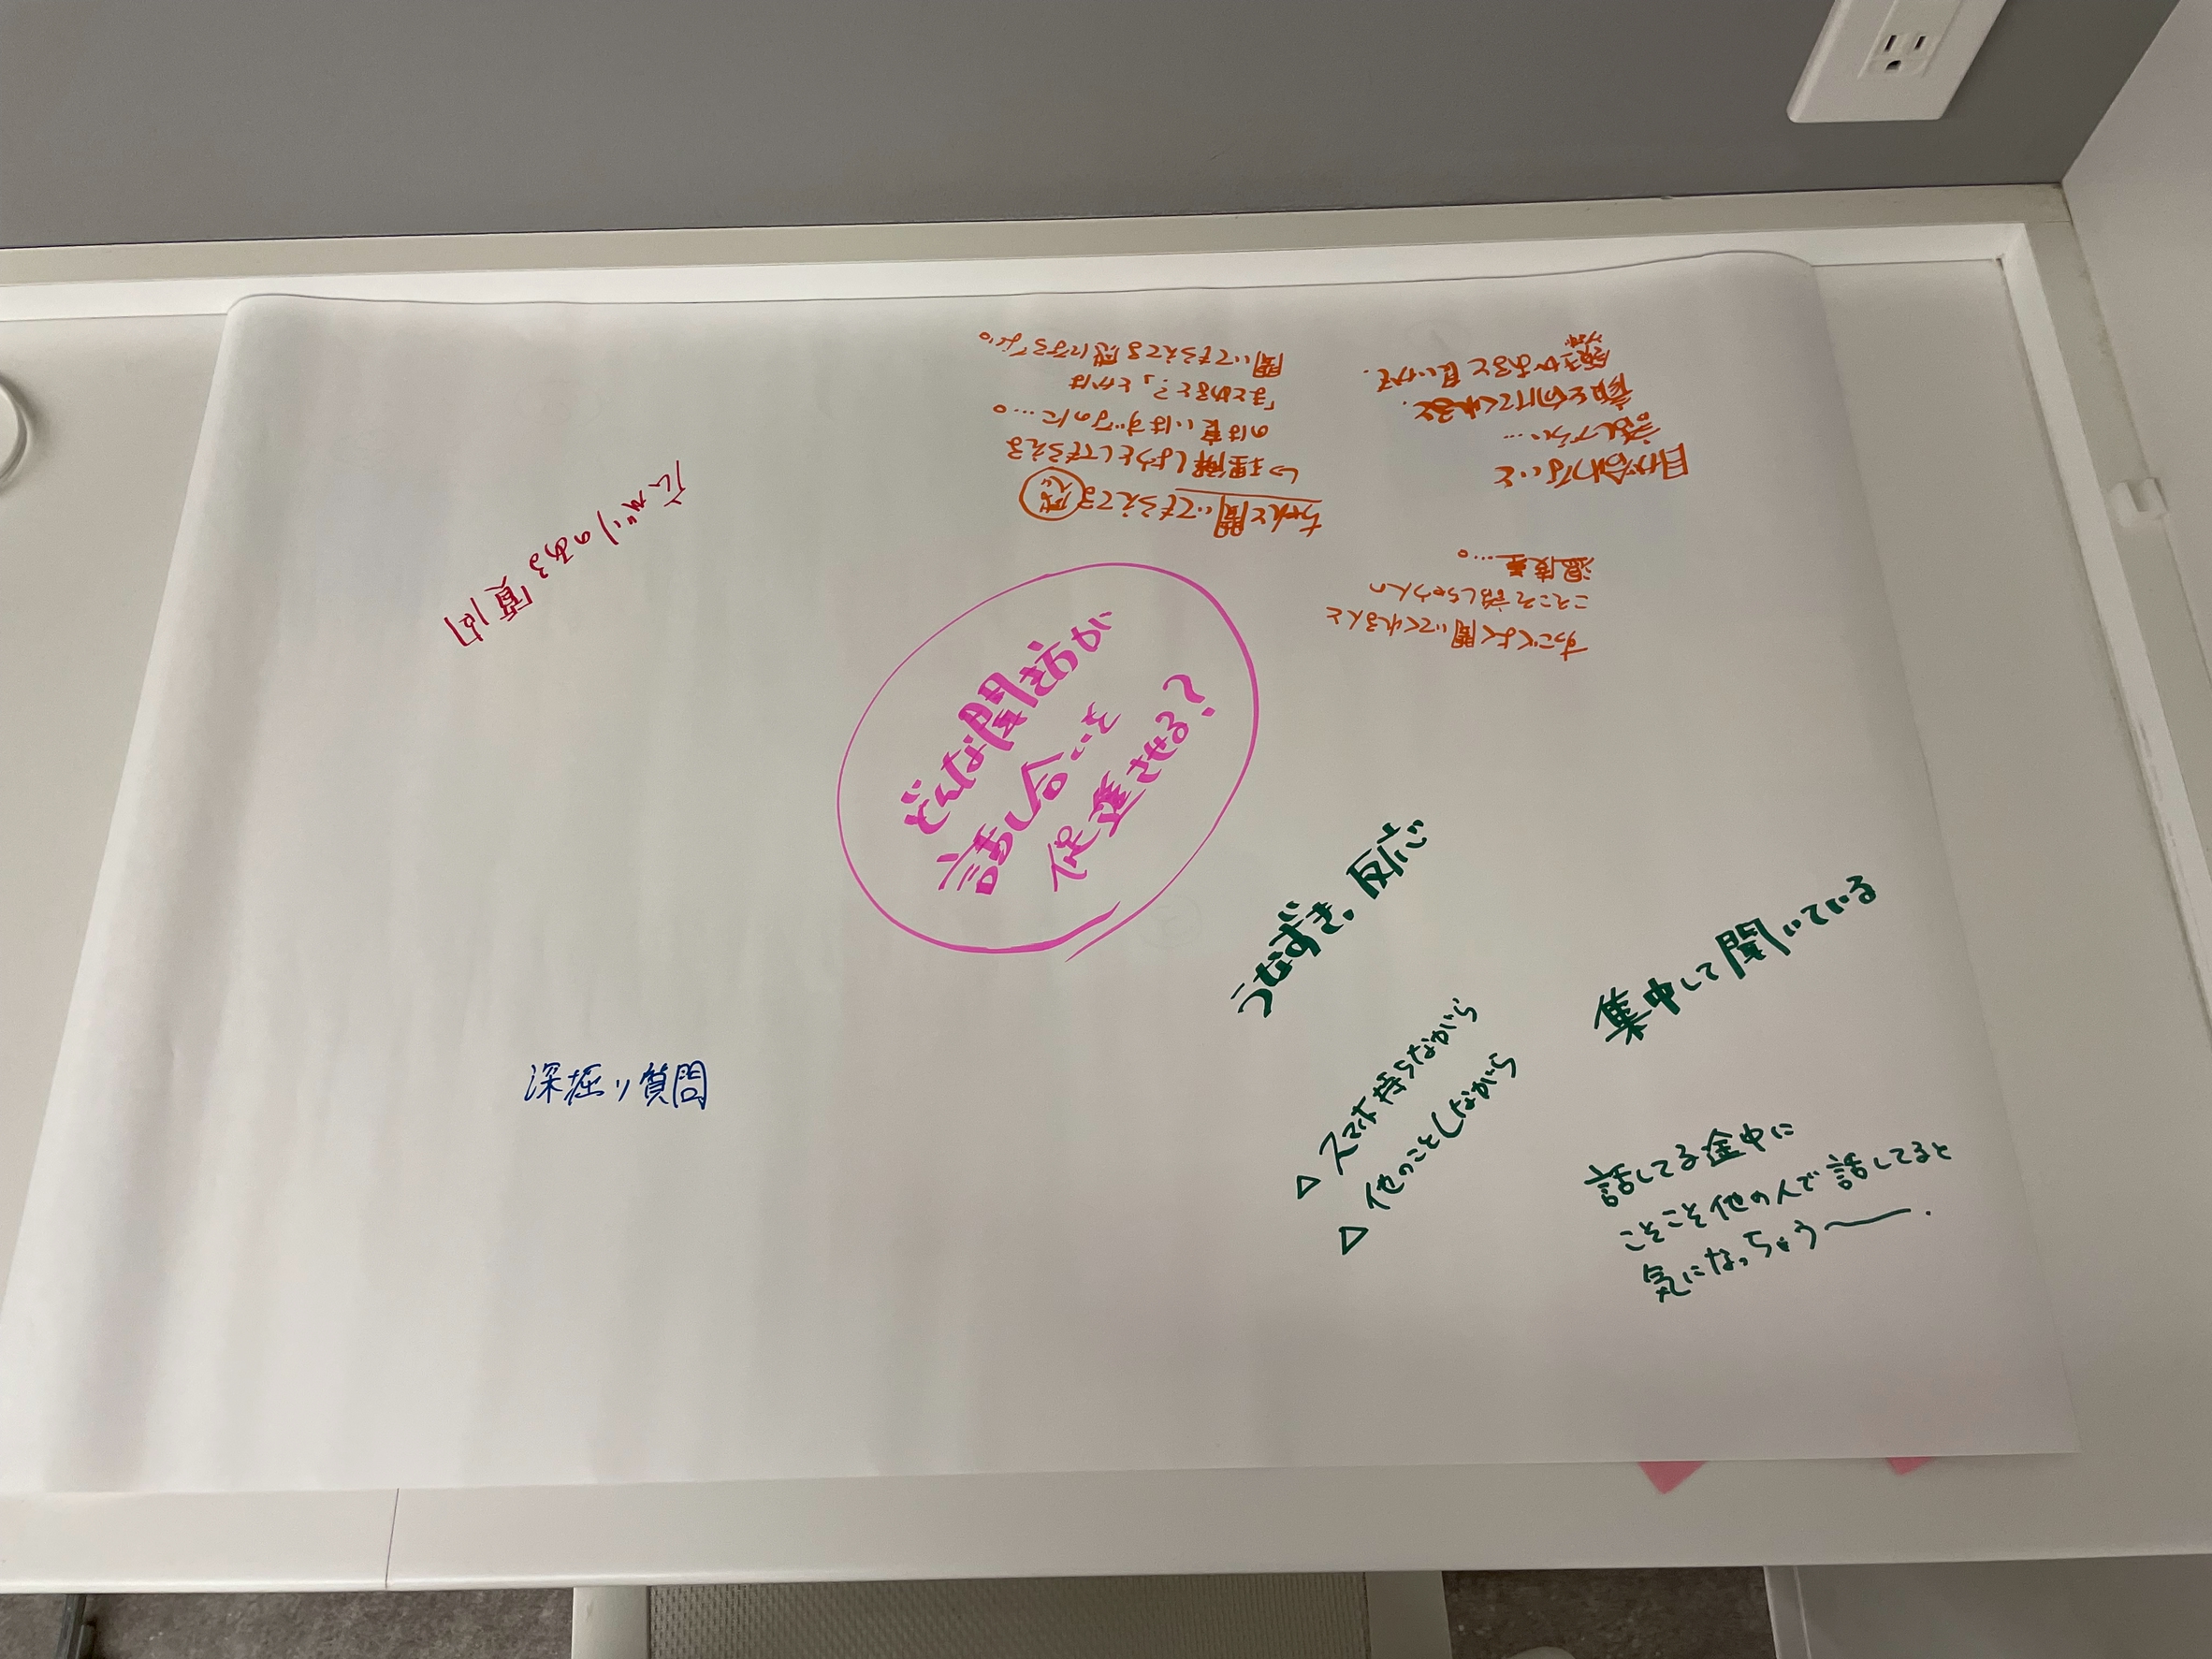 どんな聞き方が
話し合いを
促進させる？
広がりのある質問
深掘り質問
ちゃんと聞いてもらえてる感
↳理解しようとしてもらえる
のは良いはずなのに…。
「まとめると？」とかは
聞いてもらえてる感になるなぁ。
目が合わないと
話しづらい…。
顔を向けてくれると
があると良いかも。
すっごくよく聞いてくれる人と
こそこそ話しちゃう人の
温度差…。
うなずき、反応
集中して聞いている
▷スマホ持ちながら
▷他のことしながら
話してる途中に
こそこそ他の人で話してると
気になっちゃう〜.